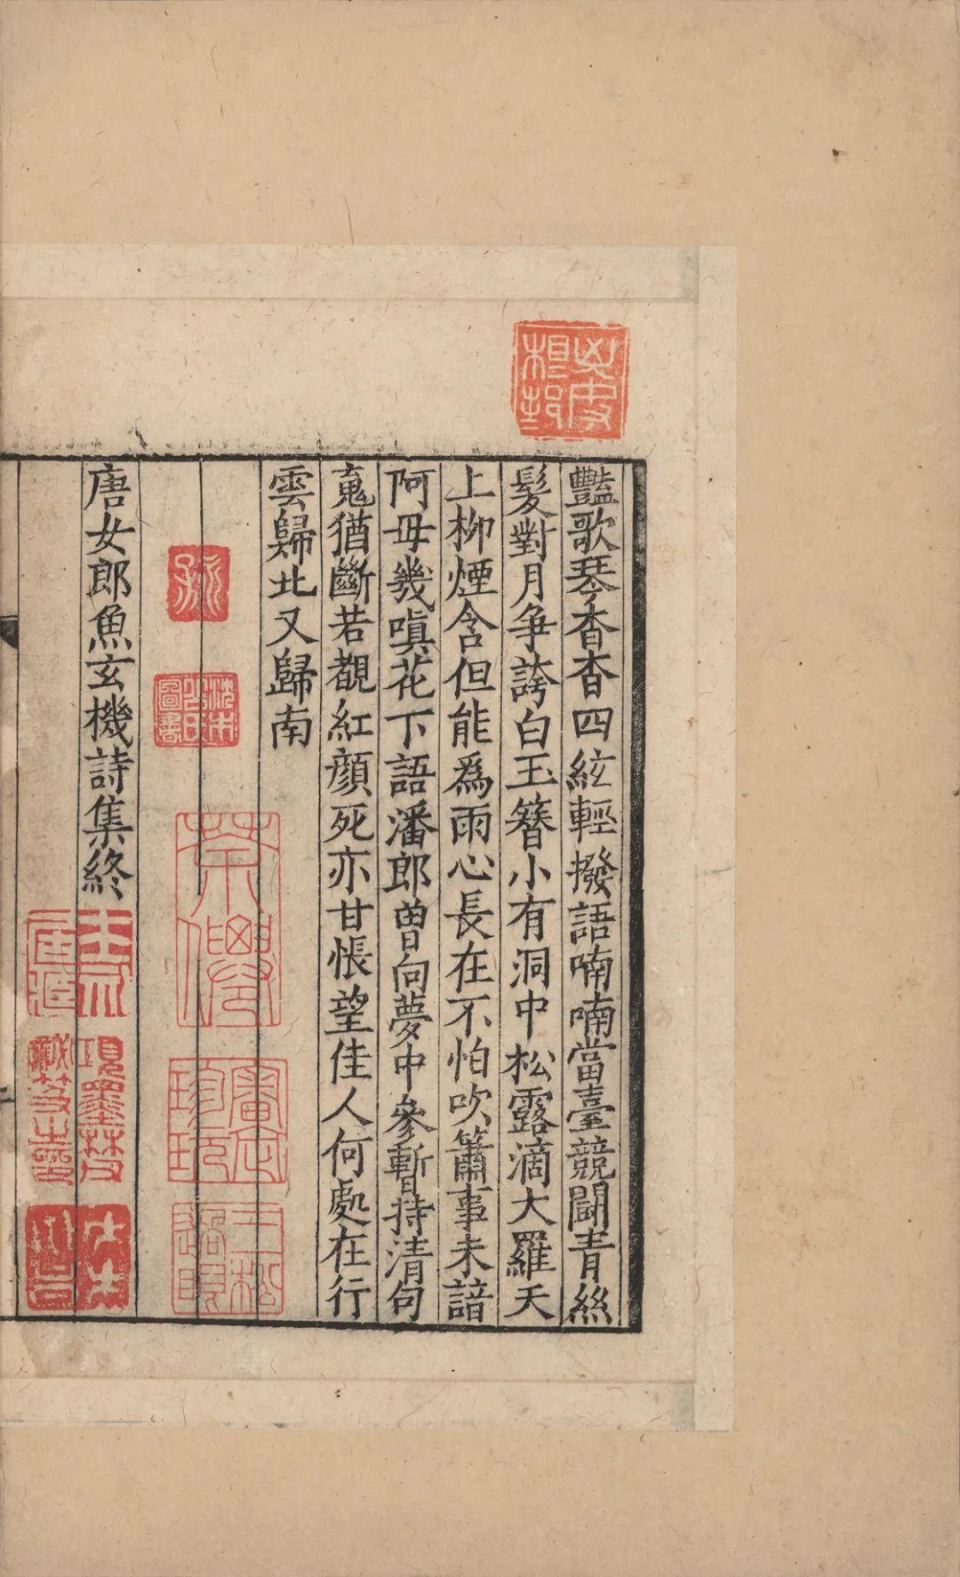 豔歌琴杳杳四絃輕撥語喃喃當臺競鬪青絲
髮對月爭誇白玉簪小有洞中松露滴大羅天
上柳煙含但能爲雨心長在不怕吹簫事未諳
阿母幾嗔花下語潘郎曾向夢中參暫持清句
䰟猶斷若覩紅顔死亦甘悵望佳人何處在行
雲歸北又歸南
唐女郎魚玄機詩集終
項墨林